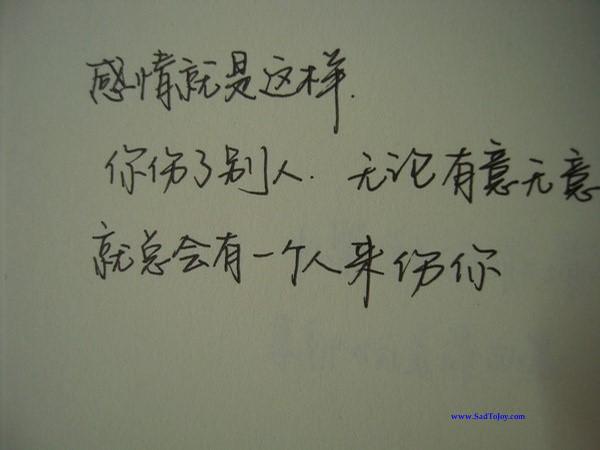 感情就是这样.
你伤了别人. 无论有意无意
就总会有一个人来伤你
www.SadToJoy.com